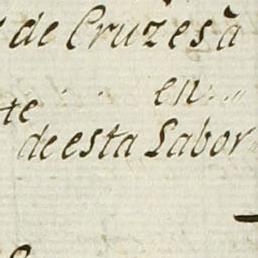 de Cruzes à
en
te
de esta Labor